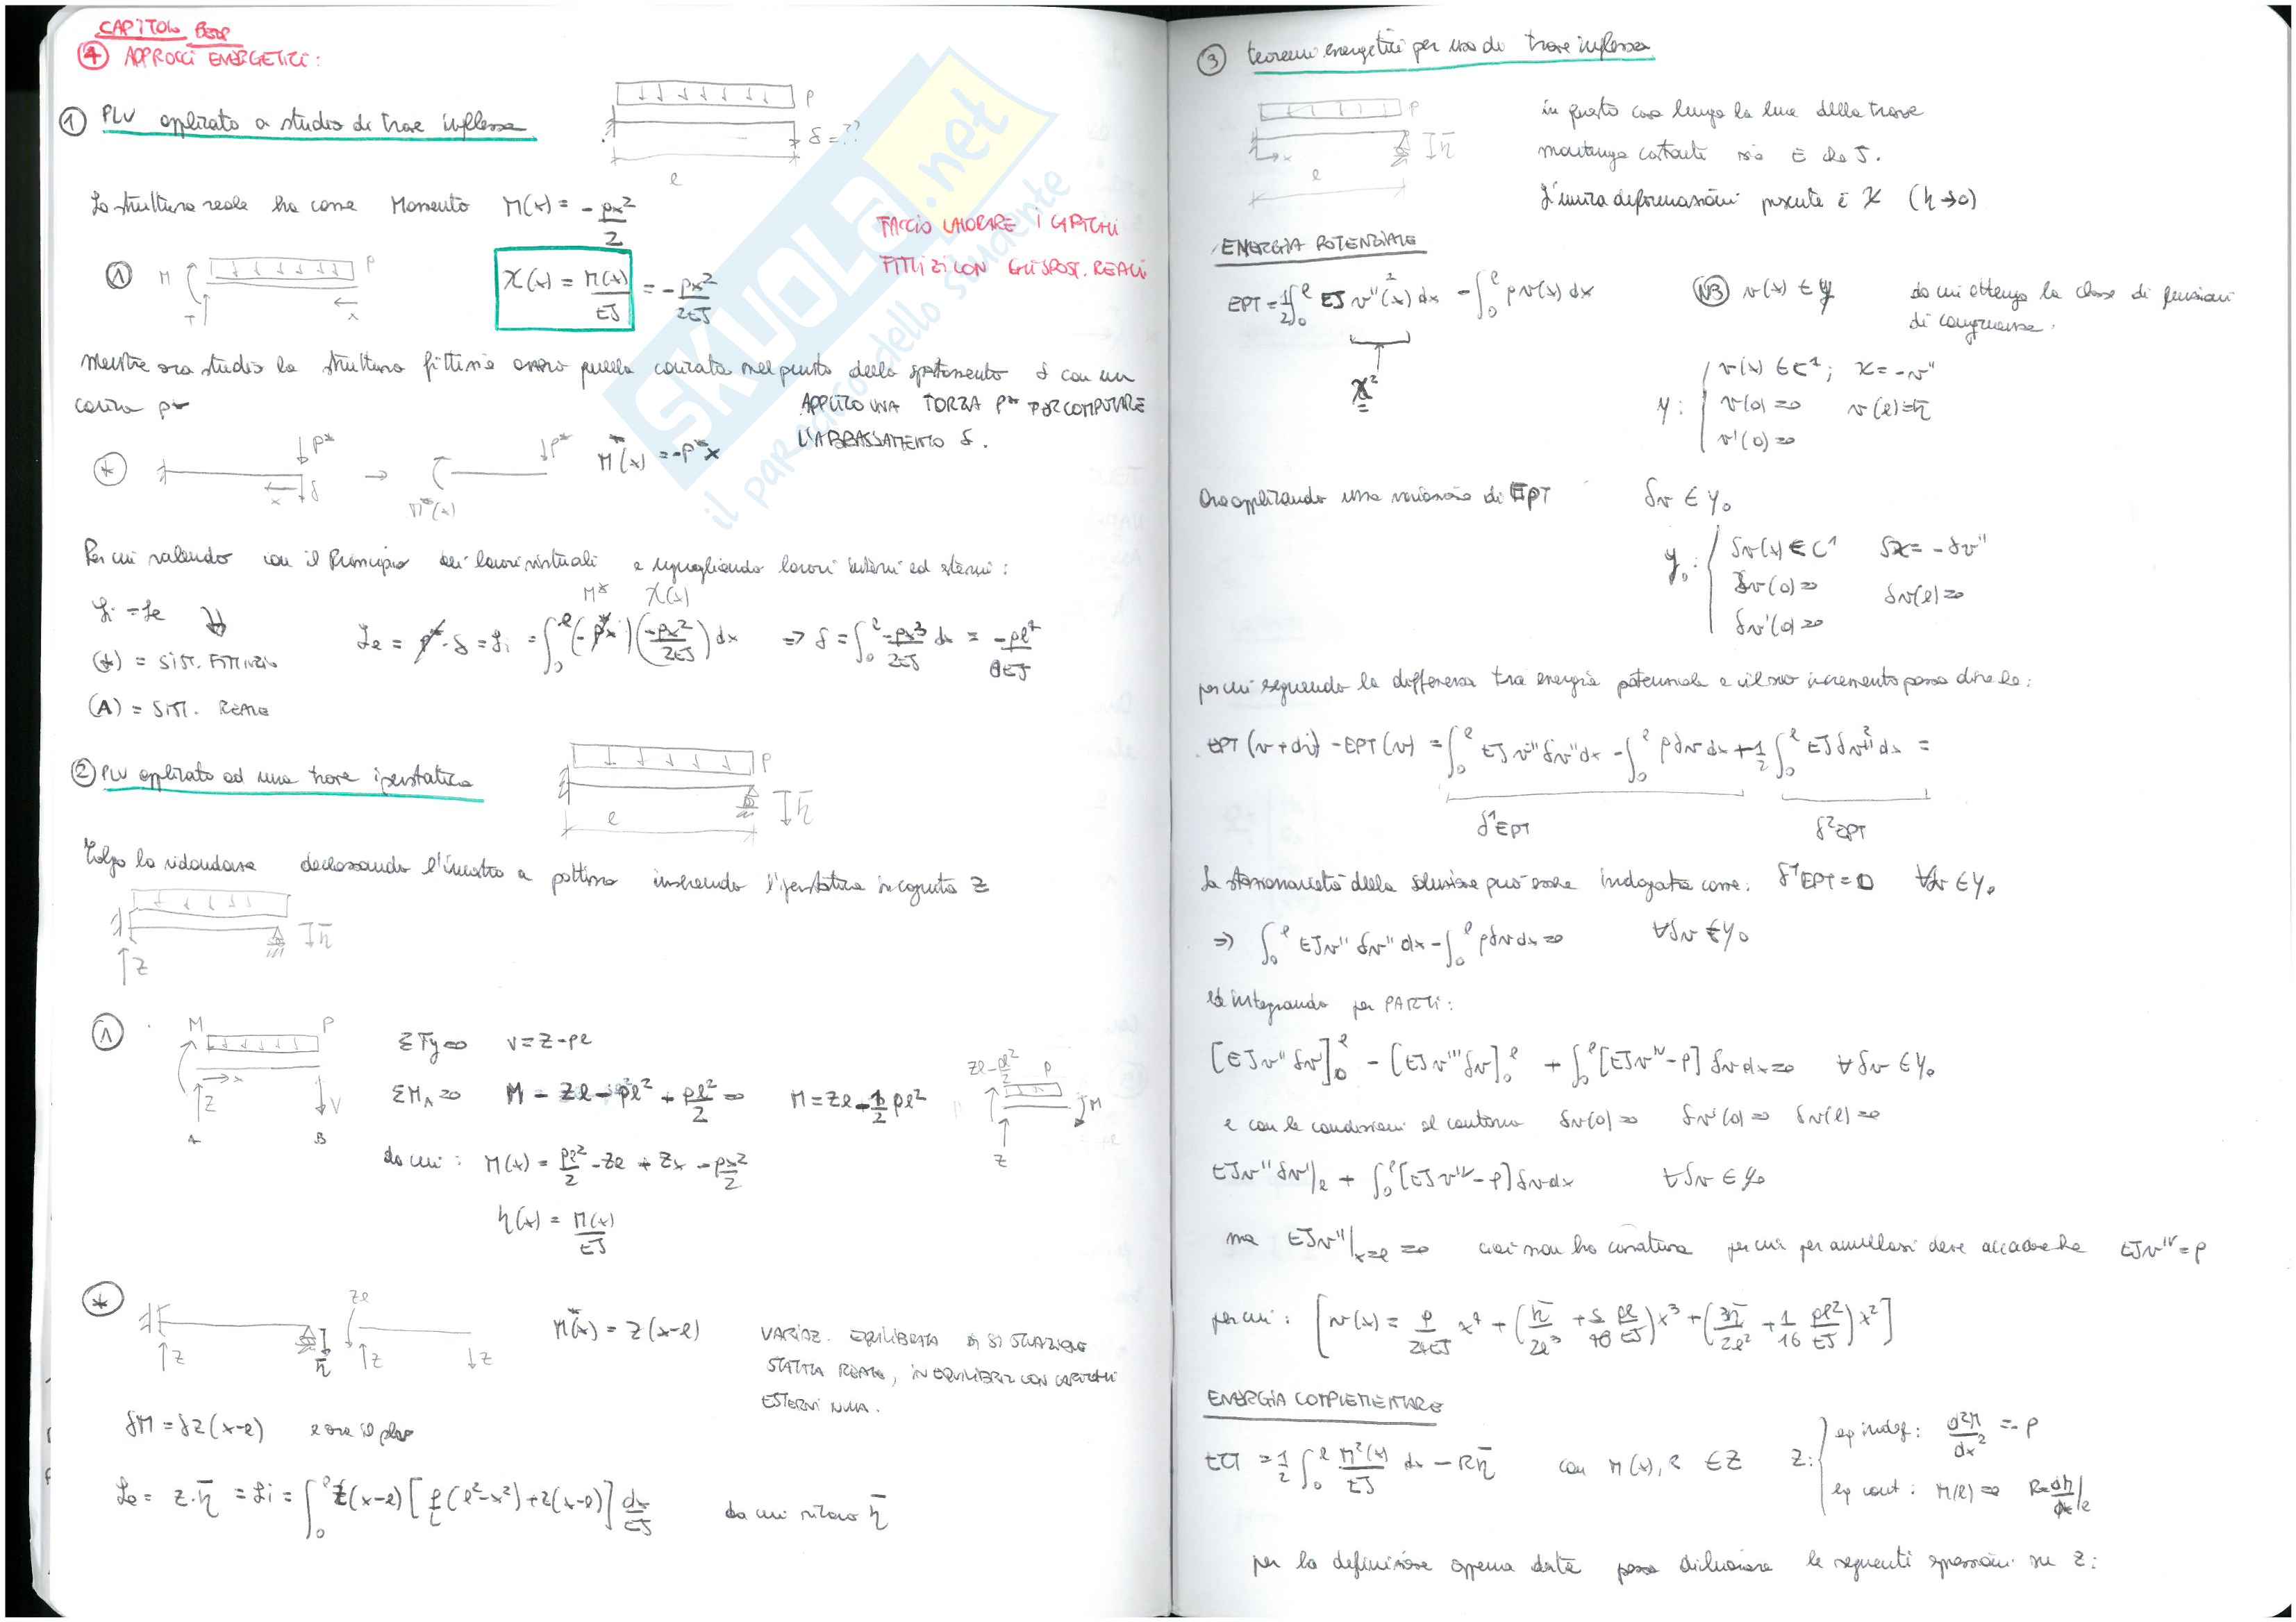 CAPITOLO BESR
④ APPROCCI ENERGETICI:
① PLV applicato a studio di trave inflessa
P
δ = ??
l
La struttura reale ha come Momento M(x) = -px²/2
FACCIO LAVORARE I CARICHI
FITTIZI CON GLI SPOST. REALI
Ⓐ M P
T x
χ(x) = M(x)/EJ = -px²/2EJ
mentre ora studio la struttura fittizia ovvero quella caricata nel punto dello spostamento δ con un
carico p*
APPLICO UNA FORZA P* PER COMPUTARE
L'ABBASSAMENTO δ.
(*) P* x δ → P* M*(x) M*(x) = -P*x
Per cui valendo con il Principio dei lavori virtuali e uguagliando lavori interni ed esterni:
M* χ(x)
Li = Le
Le = P*·δ = Li = ∫₀ˡ (-P*x)(-px²/2EJ) dx ⇒ δ = ∫₀ˡ -px³/2EJ dx = -pl⁴/8EJ
(*) = SIST. FITTIZIO
(A) = SIST. REALE
② PLV applicato ad una trave iperstatica
P
l η̄
Tolgo la ridondanza declassando l'incastro a pattino inserendo l'iperstatica incognita Z
η̄
Z
Ⓐ M P
x Z V
A B
ΣFy=0 V = Z-pl
ΣM_A=0 M - Zl - pl² + pl²/2 = 0 M = Zl - 1/2 pl²
Zl - pl²/2 P M
Z
da cui: M(x) = pl²/2 - Zl + Zx - px²/2
η(x) = M(x)/EJ
(*) Z η̄ Zl Z Z
M*(x) = Z(x-l)
VARIAZ. EQUILIBRATA DI SITUAZIONE
STATICA REALE, IN EQUILIBRIO CON CARICHI
ESTERNI NULLI.
δM = δZ(x-l) e ora il plv
Le = Z·η̄ = Li = ∫₀ˡ Z(x-l)[p/2(l²-x²)+Z(x-l)] dx/EJ da cui ritrovo η̄
③ teoremi energetici per uso di trave inflessa
P
η̄
x
l
in questo caso lungo la luce della trave
mantengo costante sia E che J.
L'unica deformazione presente è χ (h→0)
ENERGIA POTENZIALE
EPT = 1/2 ∫₀ˡ EJ v''²(x) dx - ∫₀ˡ p v(x) dx
χ²
(NB) v(x) ∈ Y da cui ottengo la classe di funzioni
di congruenza.
Y: { v(x) ∈ C¹; χ = -v''
v(0) = 0 v(l) = η̄
v'(0) = 0
Ora applicando una variazione di EPT δv ∈ Y₀
Y₀: { δv(x) ∈ C¹ δχ = -δv''
δv(0) = 0 δv(l) = 0
δv'(0) = 0
per cui eseguendo la differenza tra energia potenziale e il suo incremento posso dire che:
EPT(v+δv) - EPT(v) = ∫₀ˡ EJ v''δv'' dx - ∫₀ˡ pδv dx + 1/2 ∫₀ˡ EJ δv''² dx =
δ¹EPT δ²EPT
La stazionarietà della soluzione può essere indagata come: δ¹EPT = 0 ∀δv ∈ Y₀
⇒ ∫₀ˡ EJv'' δv'' dx - ∫₀ˡ pδv dx = 0 ∀δv ∈ Y₀
ed integrando per PARTI:
[EJv'' δv']₀ˡ - [EJv''' δv]₀ˡ + ∫₀ˡ [EJv^IV - p] δv dx = 0 ∀δv ∈ Y₀
e con le condizioni al contorno δv(0) = 0 δv'(0) = 0 δv(l) = 0
EJv'' δv'|l + ∫₀ˡ [EJv^IV - p] δv dx ∀δv ∈ Y₀
ma EJv''|x=l = 0 cioè non ho curvatura per cui per annullarsi deve accadere che EJv^IV = p
per cui: [v(x) = p/24EJ x⁴ + (η̄/2l³ + 5/48 pl/EJ) x³ + (3η̄/2l² + 1/16 pl²/EJ) x²]
ENERGIA COMPLEMENTARE
ECT = 1/2 ∫₀ˡ M²(x)/EJ dx - Rη̄ con M(x), R ∈ Z
Z: { eq indef: d²M/dx² = -p
eq cont: M(l) = 0 R = dM/dx|l
per la definizione appena data posso dichiarare le seguenti espressioni su Z:
SKUOLA.net
il paradiso dello studente